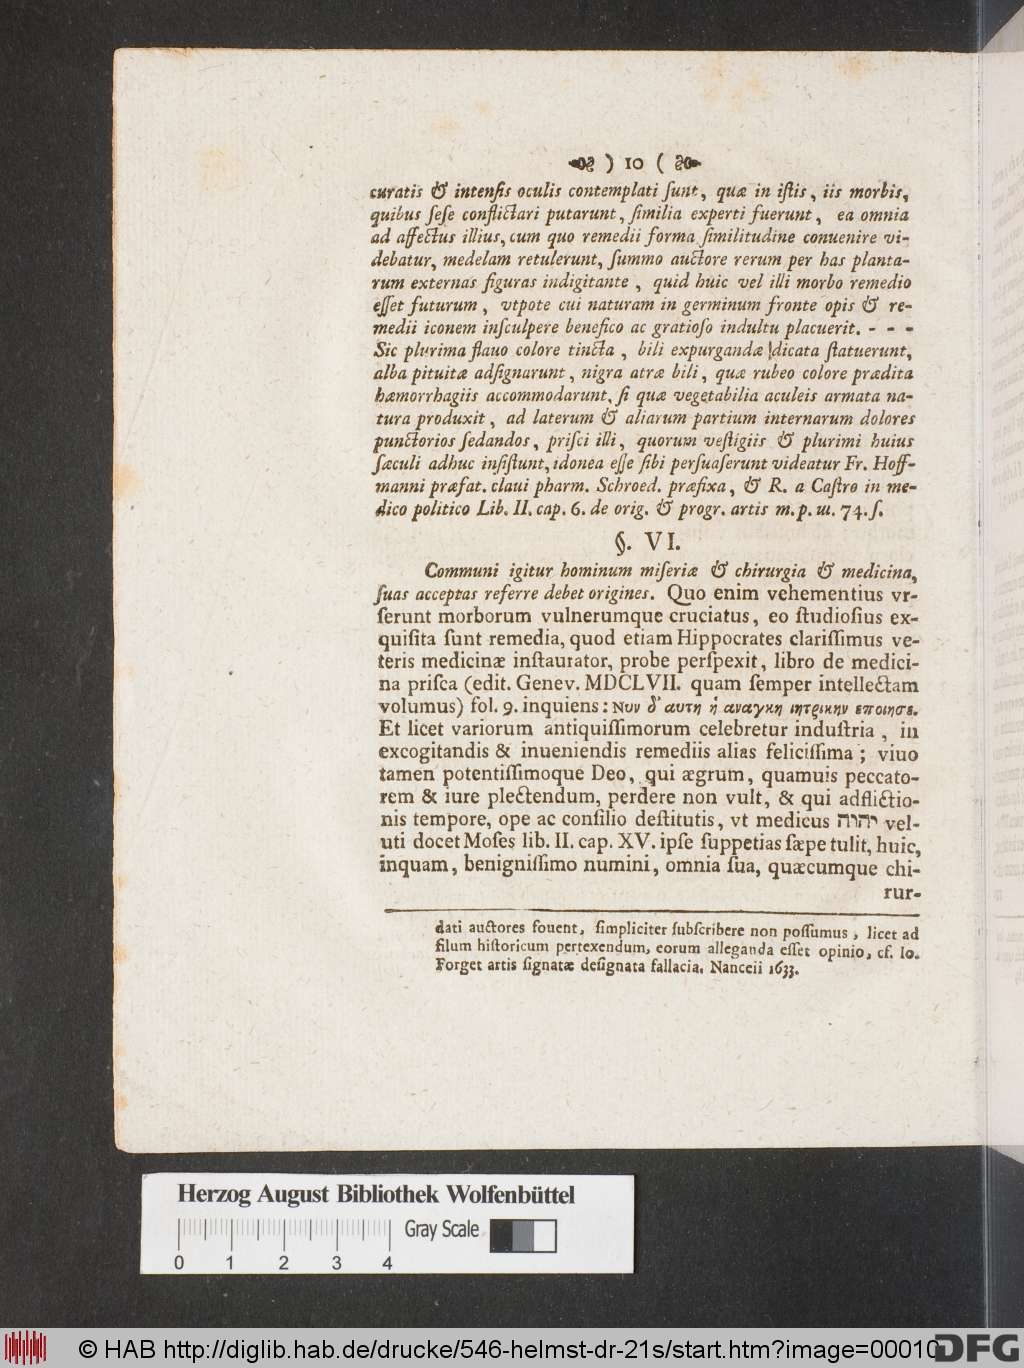 ) 10 (
curatis & intensis oculis contemplati ſunt, quæ in iſtis, iis morbis,
quibus ſeſe conflictari putarunt, ſimilia experti fuerunt, ea omnia
ad affectus illius, cum quo remedii forma ſimilitudine conuenire vi-
debatur, medelam retulerunt, ſummo auctore rerum per has planta-
rum externas figuras indigitante, quid huic vel illi morbo remedio
eſſet futurum, vtpote cui naturam in germinum fronte opis & re-
medii iconem inſculpere benefico ac gratioſo indultu placuerit. - - -
Sic plurima flauo colore tincta, bili expurgandæ dicata ſtatuerunt,
alba pituitæ adſignarunt, nigra atræ bili, quæ rubeo colore prædita
hæmorrhagiis accommodarunt, ſi quæ vegetabilia aculeis armata na-
tura produxit, ad laterum & aliarum partium internarum dolores
punctorios ſedandos, priſci illi, quorum veſtigiis & plurimi huius
ſæculi adhuc inſiſtunt, idonea eſſe ſibi perſuaſerunt videatur Fr. Hoff-
manni præfat. claui pharm. Schroed. præfixa, & R. a Caſtro in me-
dico politico Lib. II. cap. 6. de orig. & progr. artis m. p. m. 74. ſ.
§. VI.
Communi igitur hominum miſeriæ & chirurgia & medicina,
ſuas acceptas referre debet origines. Quo enim vehementius vr-
ſerunt morborum vulnerumque cruciatus, eo ſtudioſius ex-
quiſita ſunt remedia, quod etiam Hippocrates clariſſimus ve-
teris medicinæ inſtaurator, probe perſpexit, libro de medici-
na priſca (edit. Genev. MDCLVII. quam ſemper intellectam
volumus) fol. 9. inquiens: Νυν δ' αυτη ἡ αναγκη ιητρικην εποιησε.
Et licet variorum antiquiſſimorum celebretur induſtria, in
excogitandis & inueniendis remediis alias feliciſſima; viuo
tamen potentiſſimoque Deo, qui ægrum, quamuis peccato-
rem & iure plectendum, perdere non vult, & qui adflictio-
nis tempore, ope ac conſilio deſtitutis, vt medicus יהוה vel-
uti docet Moſes lib. II. cap. XV. ipſe ſuppetias ſæpe tulit, huic,
inquam, benigniſſimo numini, omnia ſua, quæcumque chi-
rur-
dati auctores fouent, ſimpliciter ſubſcribere non poſſumus, licet ad
filum hiſtoricum pertexendum, eorum alleganda eſſet opinio, cf. Io.
Forget artis ſignatæ deſignata fallacia. Nanceii 1633.
Herzog August Bibliothek Wolfenbüttel
Gray Scale
0 1 2 3 4
© HAB http://diglib.hab.de/drucke/546-helmst-dr-21s/start.htm?image=00010
DFG